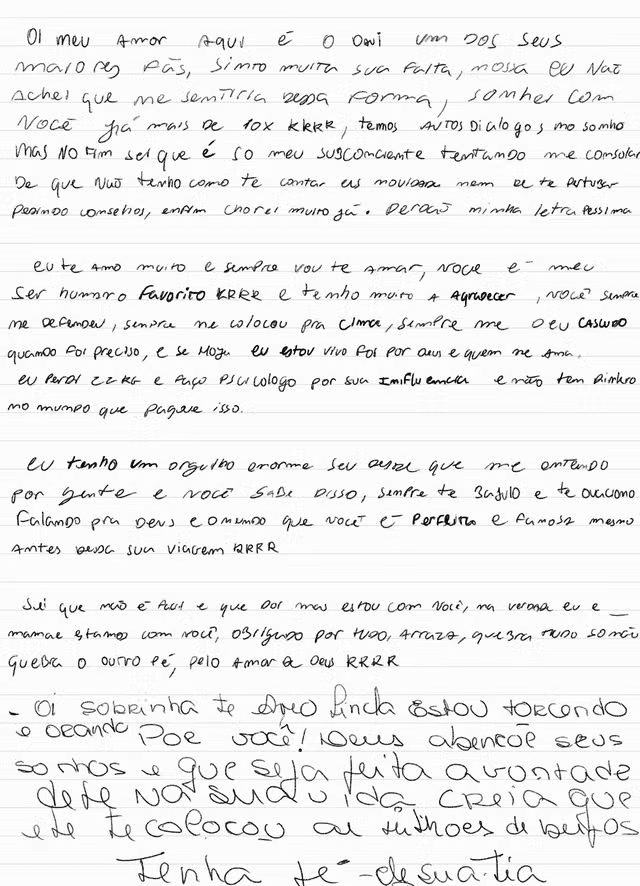 OI meu AMOR AQUI é O DAVI UM DOS SEUS
maiores fãs, simto muita sua falta, nossa eu NãO
achei que me sentiria dessa forma, sonhei com
VOCÊ já mais de 10x KRRR, temos AUTOS Dialogos no sonho
mas NO Fim sei que é só meu subconciente tentando me consolar
De que Não tenho como te contar as novidades nem de te
pedindo conselhos, enfim chorei muito já. Perdão minha letra péssima
eu te amo muito e sempre vou te amar, você é meu
ser humano Favorito KRRR e tenho muito A Agradecer, você sempre
me defendeu, sempre me colocou pra cima, sempre me deu CASCUDO
quando foi preciso, e se Hoje eu estou vivo foi por Deus e quem me Ama.
eu perdi 22KG e faço Psicologo por sua Imfluencia e não tem Dinheiro
no mundo que pague isso.
eu tenho um orgulho enorme seu desde que me entendo
por gente e você sabe disso, sempre te Babulo e te
Falando pra Deus e o mundo que você é Perfeita e famosa mesmo
Antes dessa sua viagem RRRR
Sei que não é Facil e que Doi mas estou com você, na verdade eu e
mamae estamos com você, obrigado por tudo, Arraza, quebra tudo so não
quebra o outro pé, pelo amor de Deus KRRR
- Oi sobrinha te Amo linda Estou torcendo
e orando Por você! Deus abençõe seus
sonhos e que seja feita a vontade
dele na sua vida creia que
ele te colocou ai milhoes de beijos
Tenha fé - de sua tia